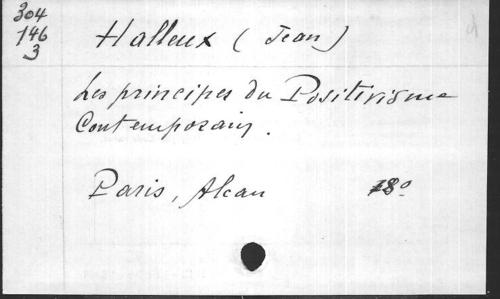 304
146
3
Halleux (Jean)
Les principes du Positivisme
Contemporain.
Paris, Alcan 18°